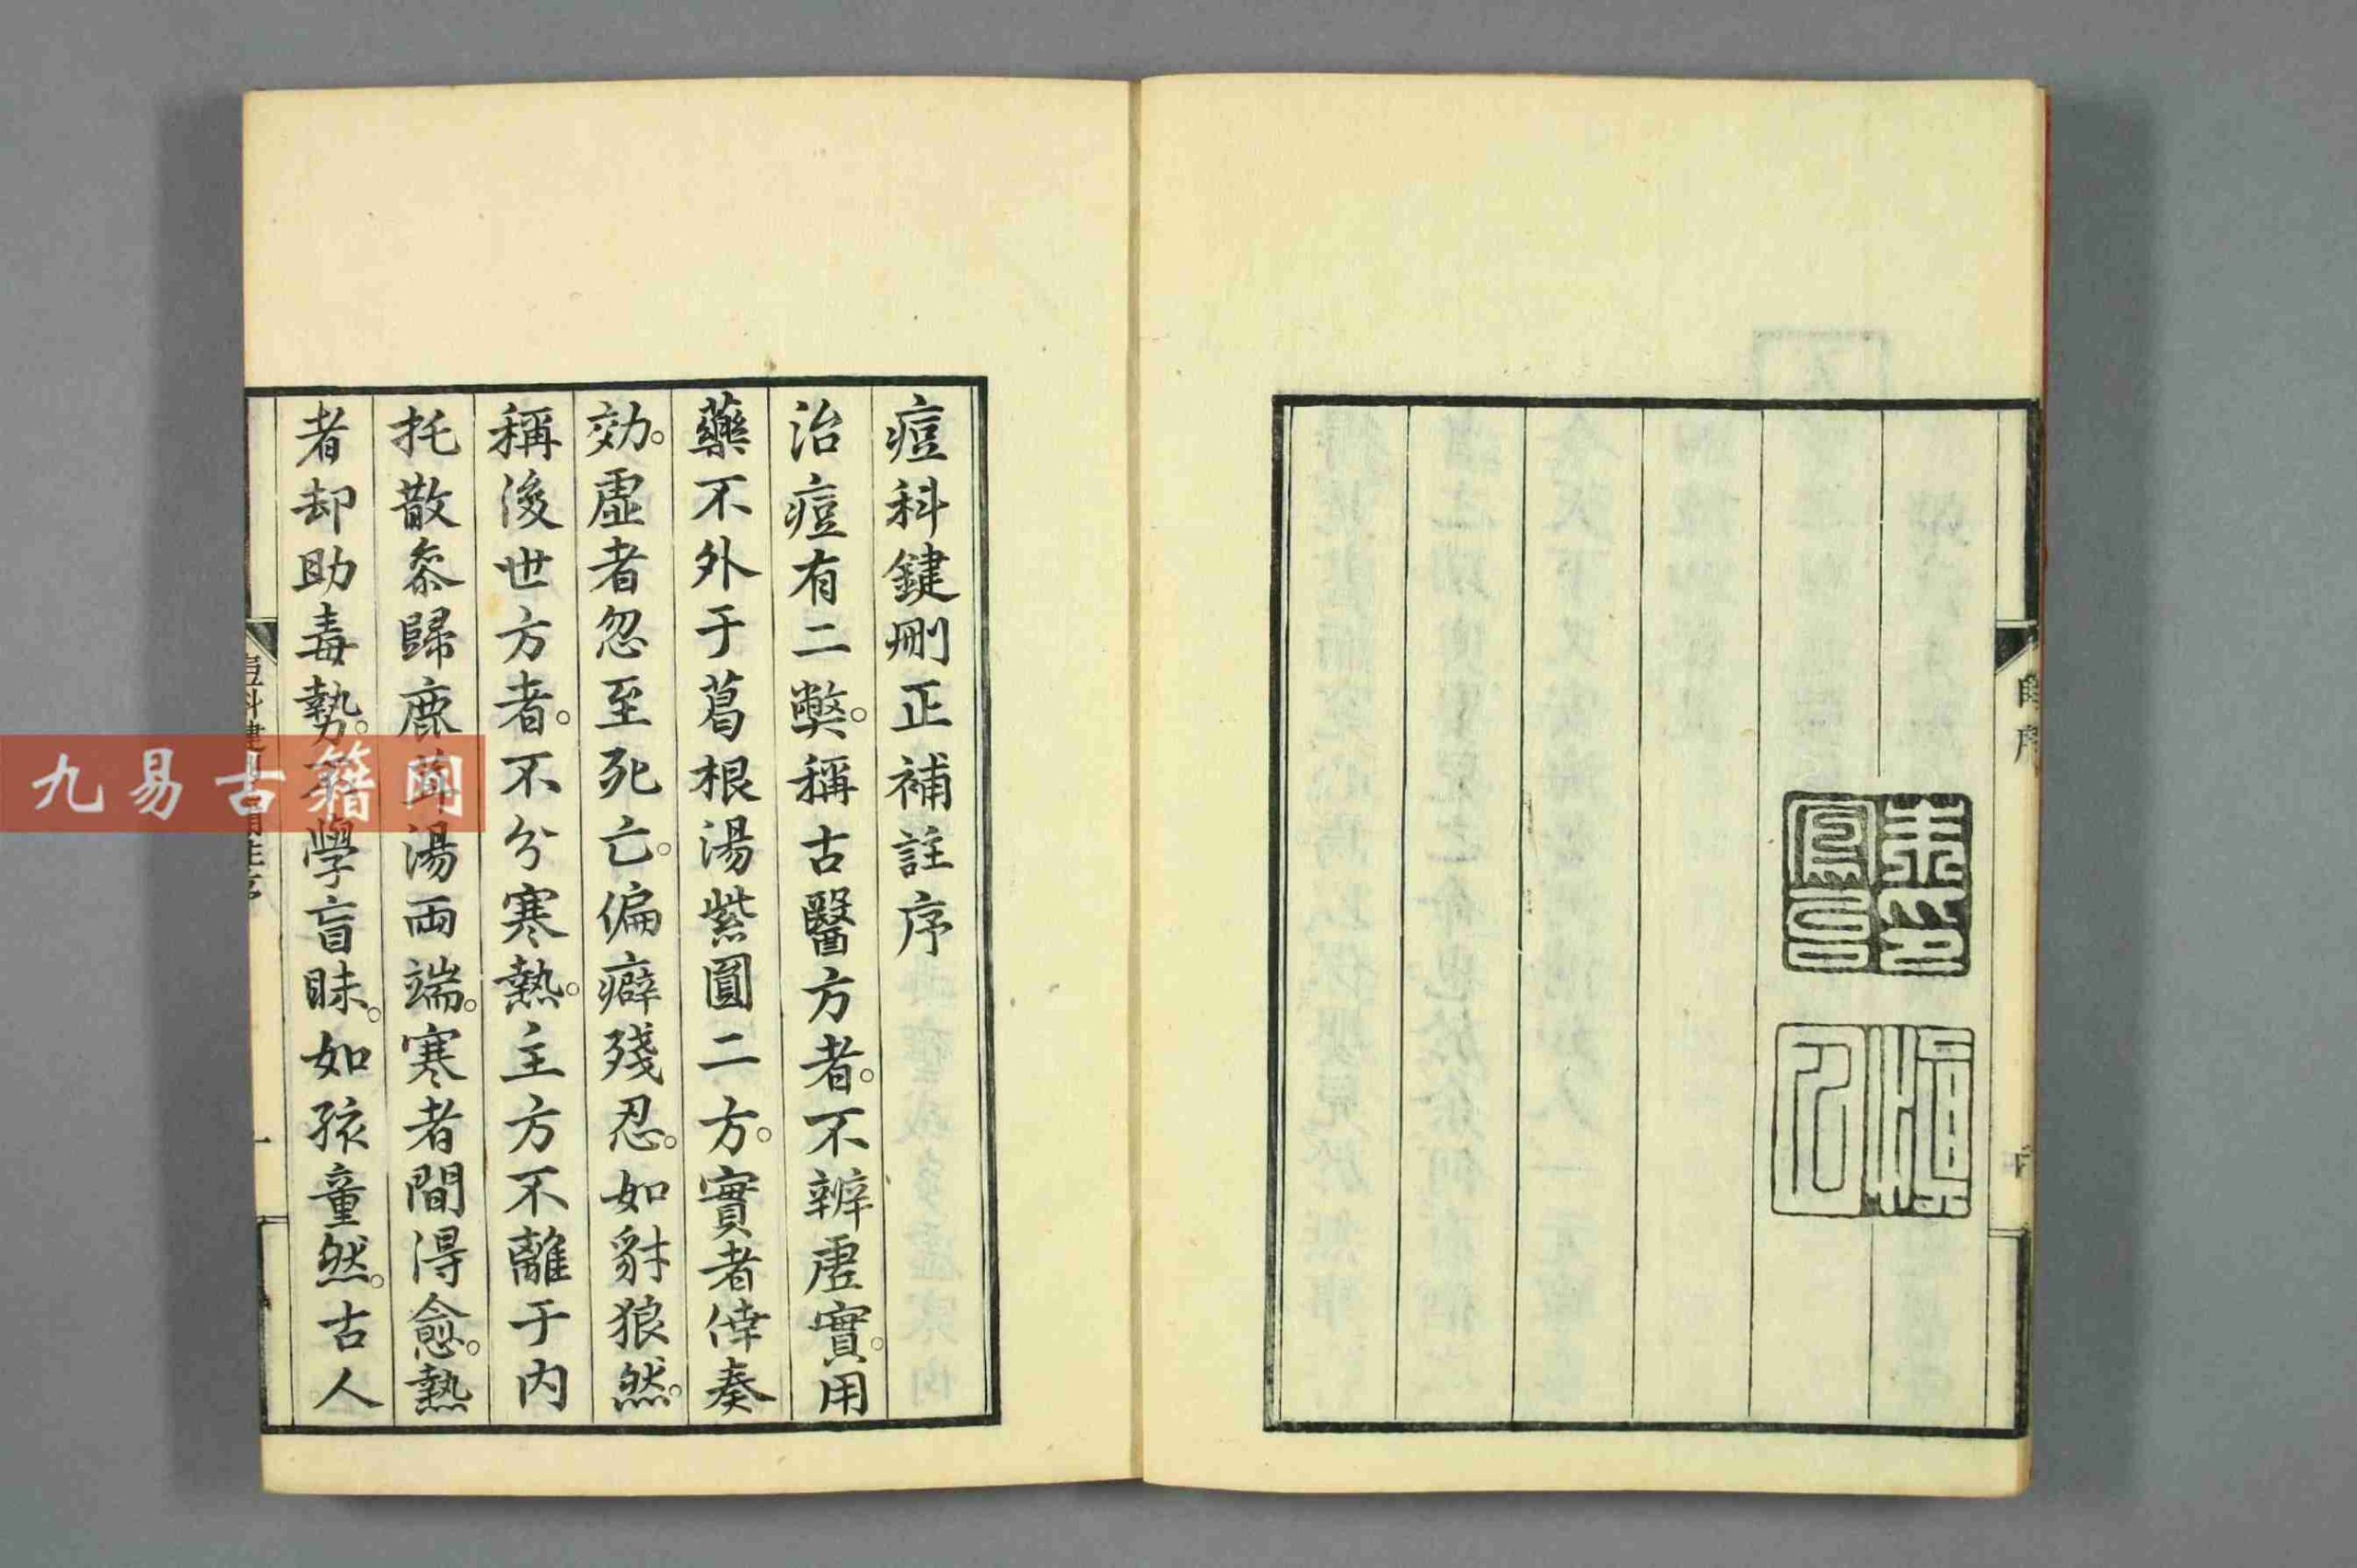 痘科鍵刪正補註序
治痘有二弊。稱古醫方者。不辨虛實。用
藥不外于葛根湯紫圓二方。實者倖奏
効。虛者忽至死亡。偏癖殘忍。如豺狼然。
稱後世方者。不分寒熱。主方不離于內
托散參歸鹿茸湯兩端。寒者間得愈。熱
者却助毒勢。學盲昧。如孩童然。古人
九易古籍网